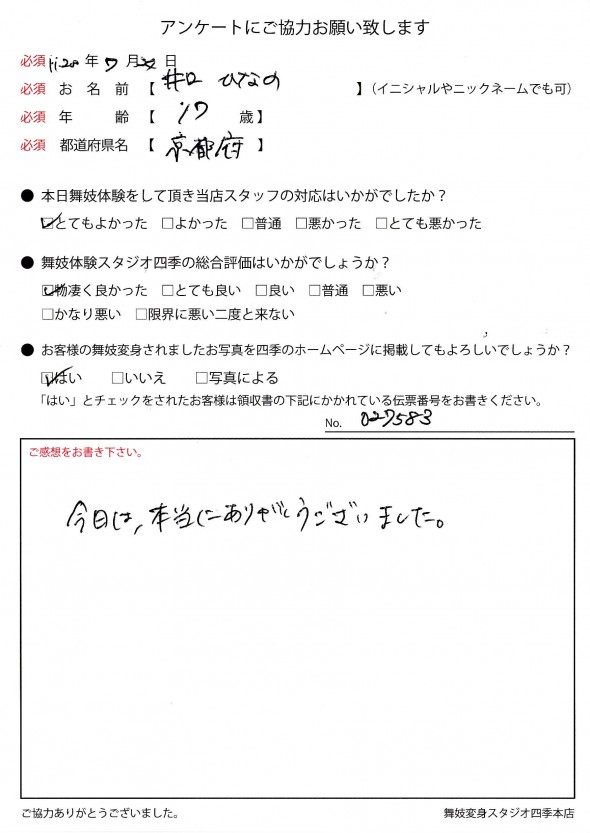 アンケートにご協力お願い致します
必須 H.28 年 7 月 日
必須 お 名 前 【 井口 ひなの 】（イニシャルやニックネームでも可）
必須 年 齢 【 17 歳】
必須 都道府県名 【 京都府 】
● 本日舞妓体験をして頂き当店スタッフの対応はいかがでしたか？
☑とてもよかった □よかった □普通 □悪かった □とても悪かった
● 舞妓体験スタジオ四季の総合評価はいかがでしょうか？
☑物凄く良かった □とても良い □良い □普通 □悪い
□かなり悪い □限界に悪い二度と来ない
● お客様の舞妓変身されましたお写真を四季のホームページに掲載してもよろしいでしょうか？
☑はい □いいえ □写真による
「はい」とチェックをされたお客様は領収書の下記にかかれている伝票番号をお書きください。
No. 027583
ご感想をお書き下さい。
今日は、本当にありがとうございました。
ご協力ありがとうございました。 舞妓変身スタジオ四季本店